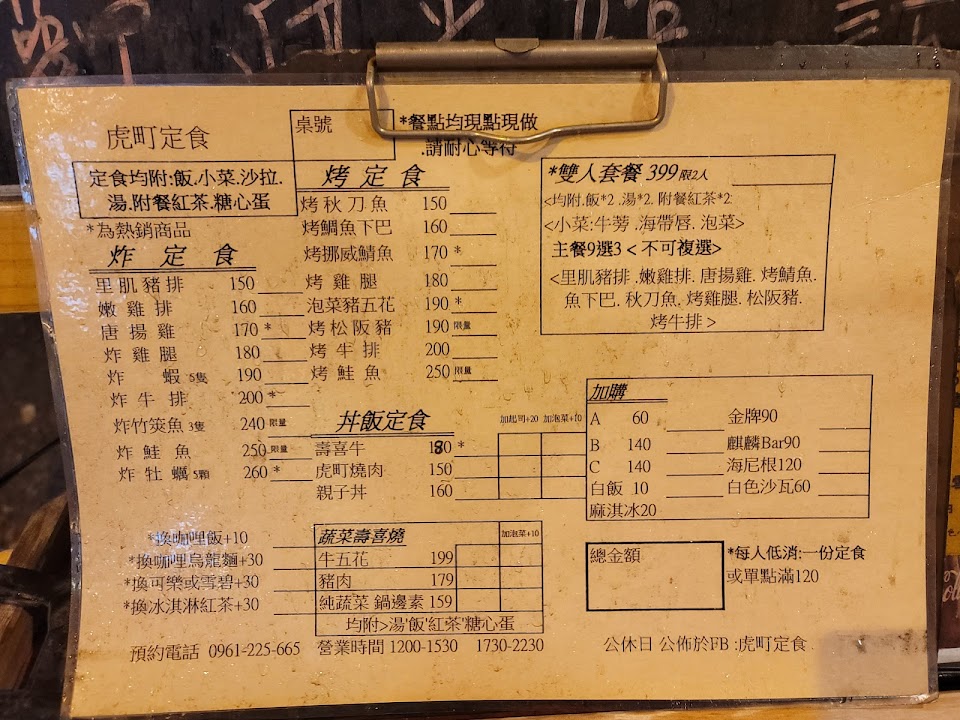 虎町定食
桌號
*餐點均現點現做
.請耐心等待
定食均附:飯.小菜.沙拉.
湯.附餐紅茶.糖心蛋
*為熱銷商品
炸 定 食
里肌豬排 150
嫩雞排 160
唐揚雞 170 *
炸雞腿 180
炸 蝦 5隻 190
炸牛排 200 *
炸竹筴魚 3隻 240 限量
炸鮭魚 250 限量
炸牡蠣 5顆 260 *
烤 定 食
烤秋刀魚 150
烤鯛魚下巴 160
烤挪威鯖魚 170 *
烤雞腿 180
泡菜豬五花 190 *
烤松阪豬 190 限量
烤牛排 200
烤鮭魚 250 限量
丼飯定食 加起司+20 加泡菜+10
壽喜牛 180 *
虎町燒肉 150
親子丼 160
*雙人套餐 399 限2人
<均附.飯*2 .湯*2. 附餐紅茶*2
<小菜:牛蒡 .海帶唇. 泡菜>
主餐9選3 < 不可複選>
<里肌豬排 .嫩雞排. 唐揚雞. 烤鯖魚.
魚下巴. 秋刀魚. 烤雞腿. 松阪豬.
烤牛排 >
加購
A 60 金牌90
B 140 麒麟Bar90
C 140 海尼根120
白飯 10 白色沙瓦60
麻淇冰20
*換咖哩飯+10
*換咖哩烏龍麵+30
*換可樂或雪碧+30
*換冰淇淋紅茶+30
蔬菜壽喜燒 加泡菜+10
牛五花 199
豬肉 179
純蔬菜 鍋邊素 159
均附>湯'飯'紅茶'糖心蛋
總金額
*每人低消:一份定食
或單點滿120
預約電話 0961-225-665 營業時間 1200-1530 1730-2230
公休日 公佈於FB :虎町定食